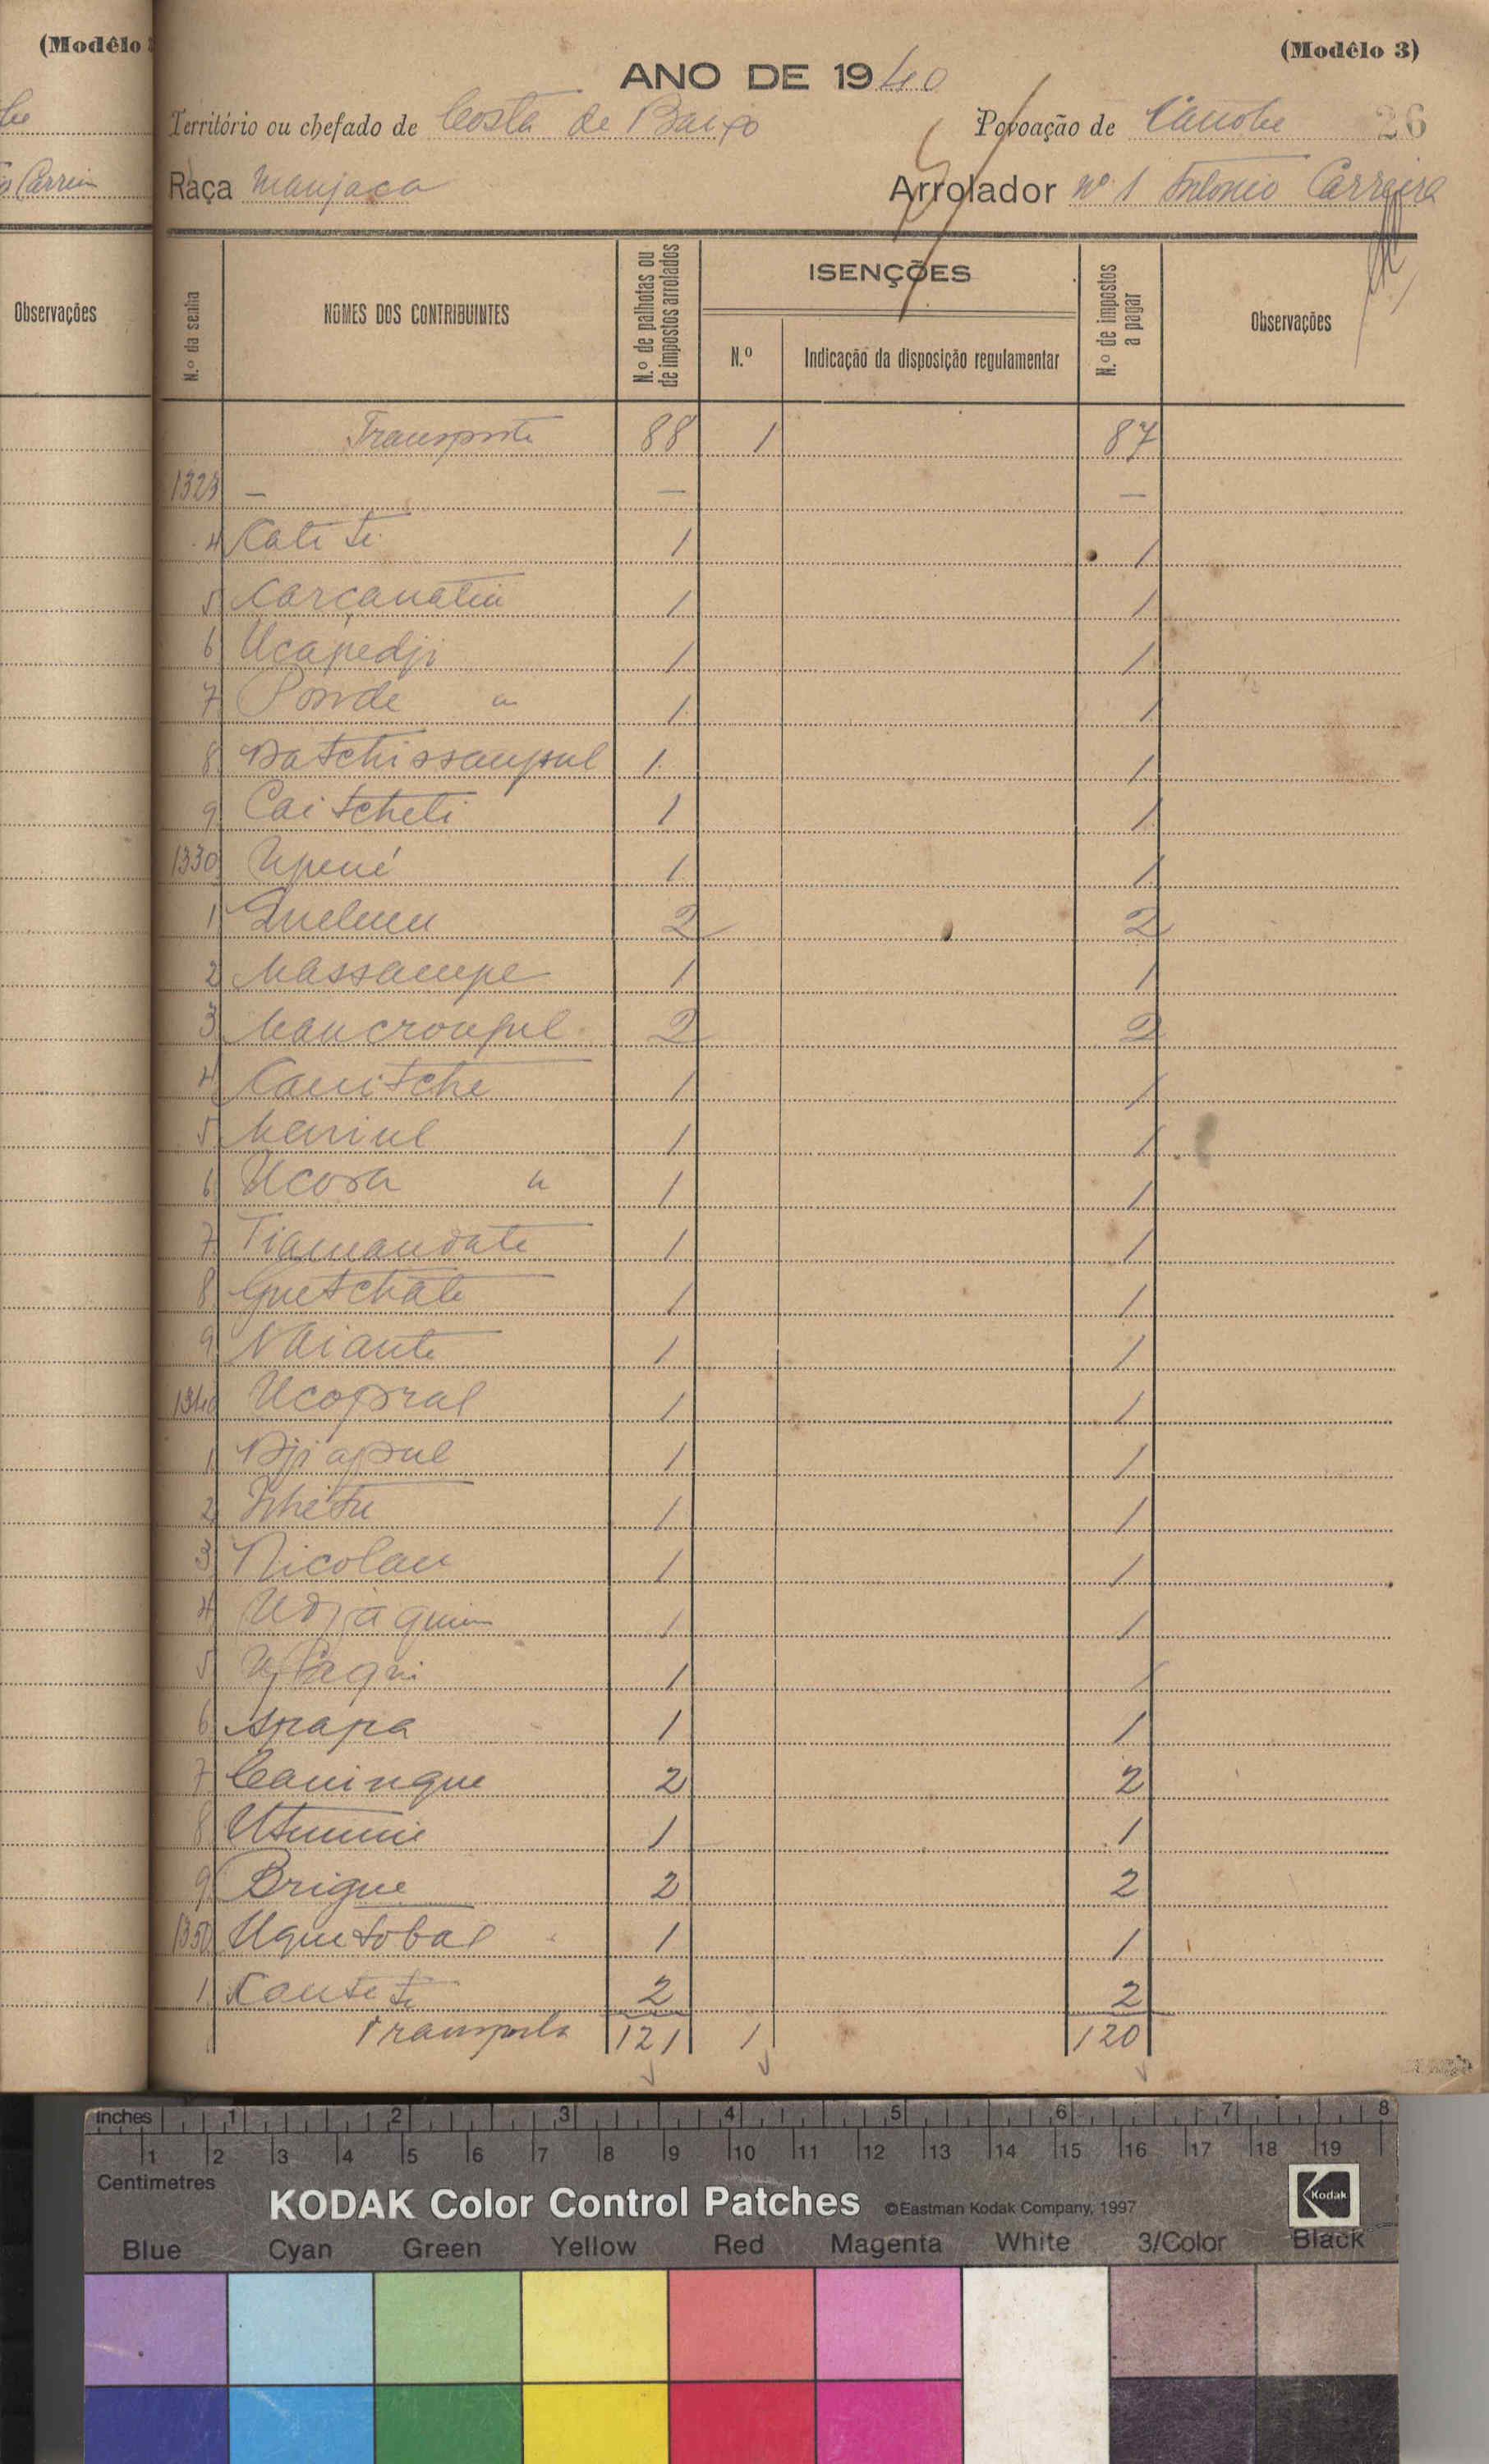 (Modêlo
(Modêlo 3)
ANO DE 1940
Território ou chefado de Costa de Baixo
Povoação de Canobe 26
Raça Manjaca
Arrolador nº 1 Antonio Carreira
Observações
N.º da senha
NOMES DOS CONTRIBUINTES
N.º de palhotas ou de impostos arrolados
ISENÇÕES
N.º
Indicação da disposição regulamentar
N.º de impostos a pagar
Observações
Transporte 88 1 87
1323 — — —
4 Cati te 1 1
5 Carçanatin 1 1
6 Ucapedji 1 1
7 Ponde " 1 1
8 Datchissaupul 1 1
9 Caitcheti 1 1
1330 Upené 1 1
1 Quelum 2 2
2 Massampe 1 1
3 Cancroupul 2 2
4 Canitche 1 1
5 1 1
6 Ucora " 1 1
7 Tiamandate 1 1
8 Guetchate 1 1
9 Naiante 1 1
1340 Ucopral 1 1
1 Djiapul 1 1
2 1 1
3 Nicolau 1 1
4 Udjaquim 1 1
5 1 1
6 Apapa 1 1
7 Caningue 2 2
8 1 1
9 Brigue 2 2
1350 Uquitobal 1 1
1 Cantete 2 2
Transporte 121 1 120
inches 1 2 3 4 5 6 7 8
1 2 3 4 5 6 7 8 9 10 11 12 13 14 15 16 17 18 19
Centimetres
KODAK Color Control Patches ©Eastman Kodak Company, 1997 Kodak
Blue Cyan Green Yellow Red Magenta White 3/Color Black